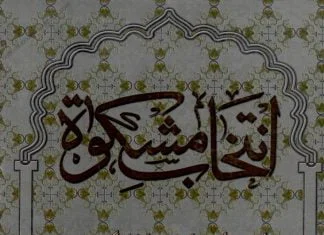 انتخاب مشکوٰة